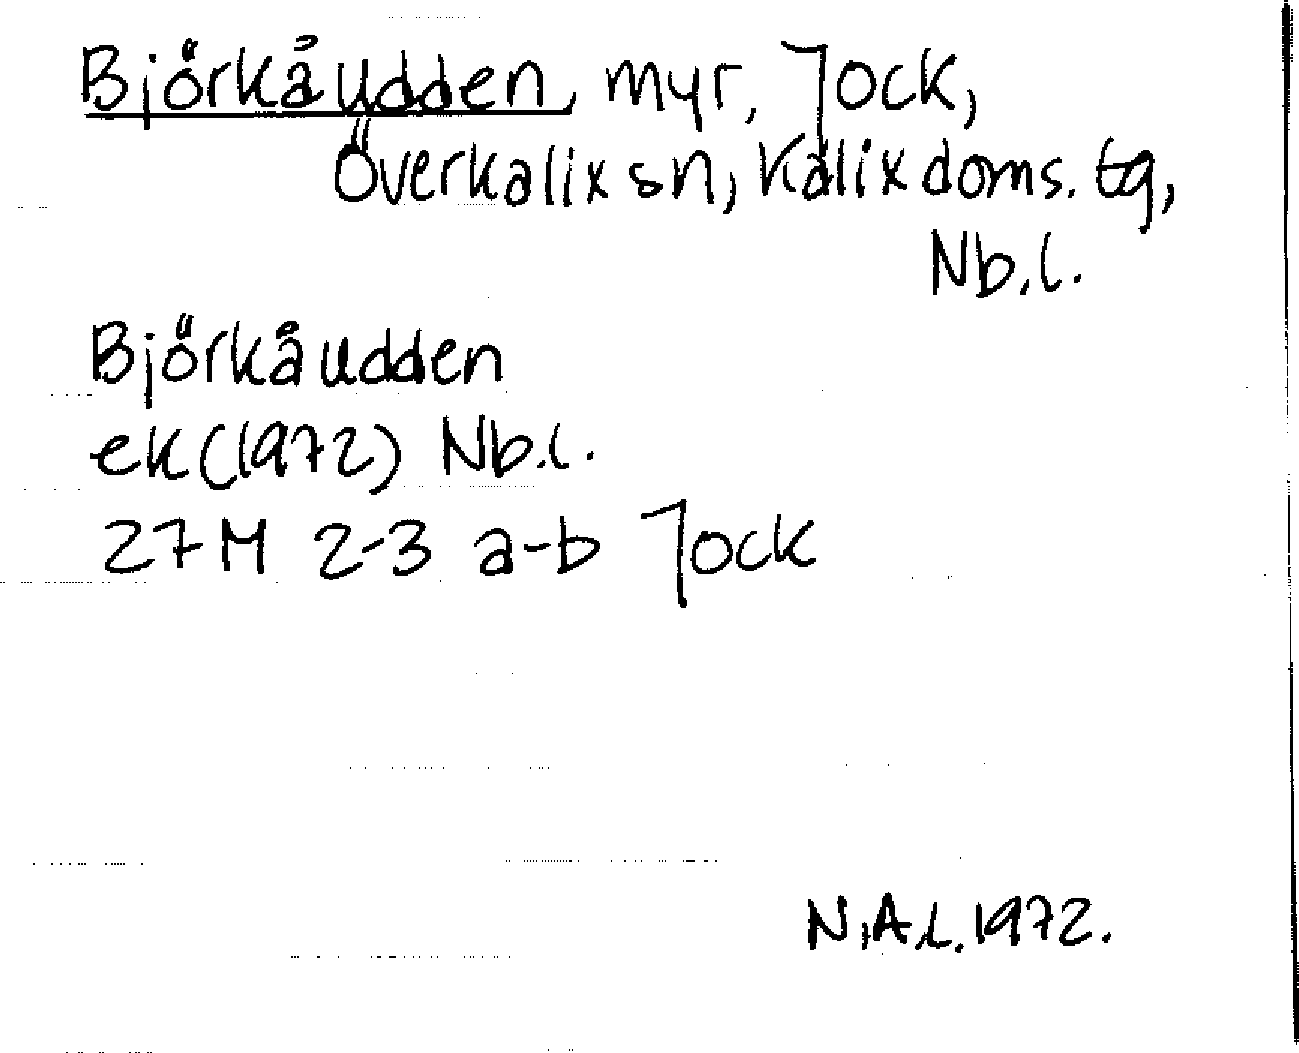 Björkåudden, myr, Jock,
Överkalix sn, Kalix doms. tg,
Nb.l.
Björkåudden
ek (1972) Nb.l.
27M 2-3 a-b Jock
N.A.L. 1972.